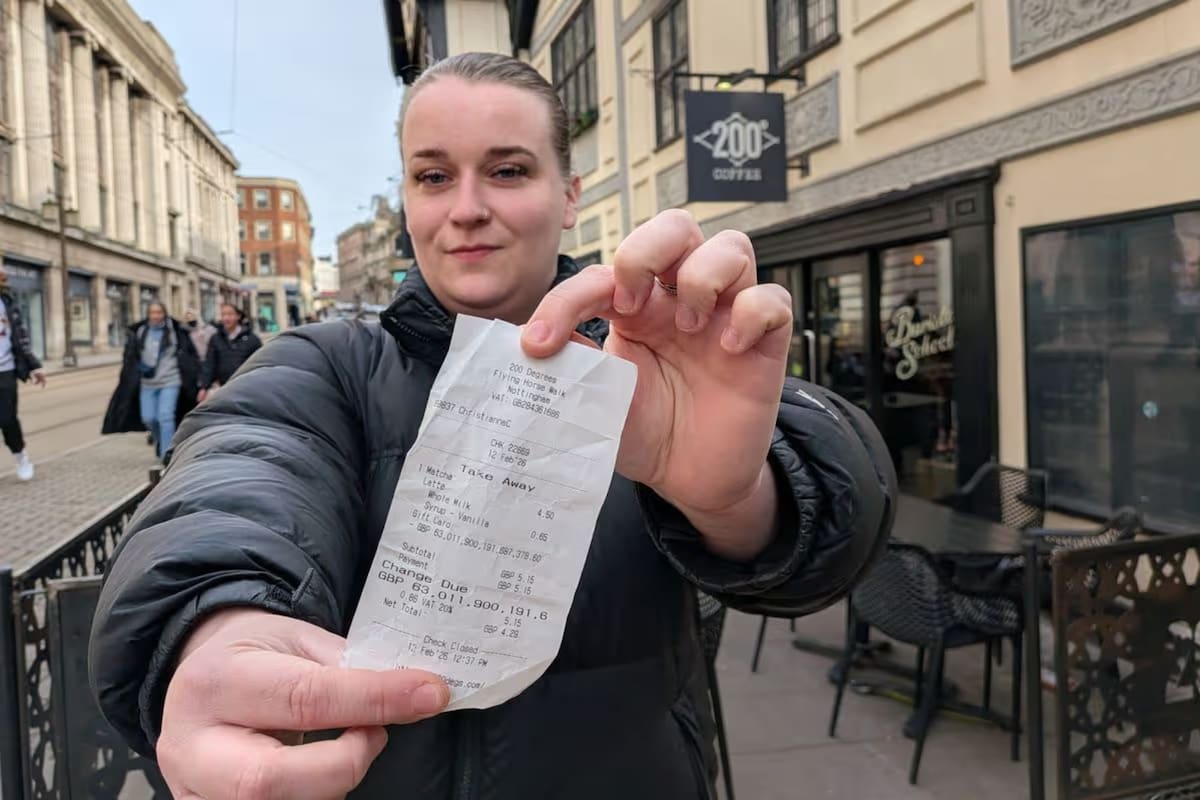 200°
COFFEE
Barista
School
200 Degrees
Flying Horse Walk
Nottingham
VAT: GB284361686
69837 ChristianneC
CHK 22669
12 Feb'26
Take Away
1 Matcha 4.50
Latte
Whole Milk
Syrup - Vanilla 0.65
Gift Card
- GBP 63,011,900,191,687,378.60
Subtotal GBP 5.15
Payment GBP 5.15
Change Due
GBP 63,011,900,191,6
0.86 VAT 20% 5.15
Net Total GBP 4.29
Check Closed
12 Feb'26 12:37 PM